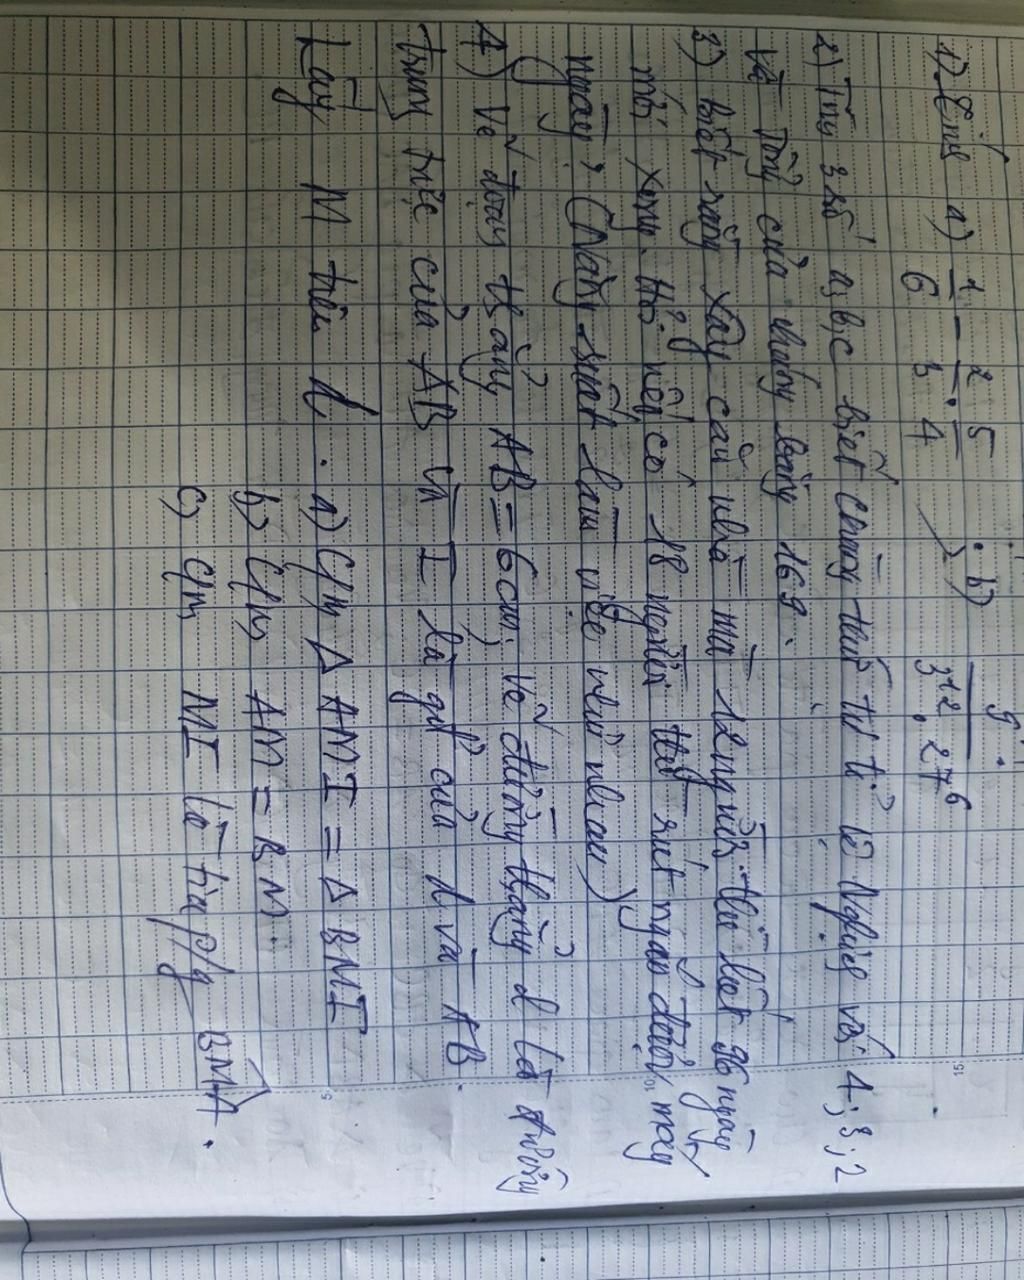 1) Tính a) 1/6 - 2/3 . 5/4 b) 9 / 3^12 . 27^6
2) Tìm 3 số a, b, c biết chúng tỉ lệ Nghịch với 4; 3; 2
và Tổng của chúng bằng 169.
3) biết rằng xây căn nhà mà 12 người thì hết 96 ngày
mới xong. Hỏi nếu có 18 người thì rút ngắn được mấy
ngày? (Năng suất làm việc như nhau)
4) Vẽ đoạn thẳng AB = 6cm, Vẽ đường thẳng d là đường
trung trực của AB và I là gđ của d và AB.
Lấy M trên d. a) C/m Δ AMI = Δ BMI
b) C/m AM = BM.
c) C/m MI là tia p/g BMA.
15
5